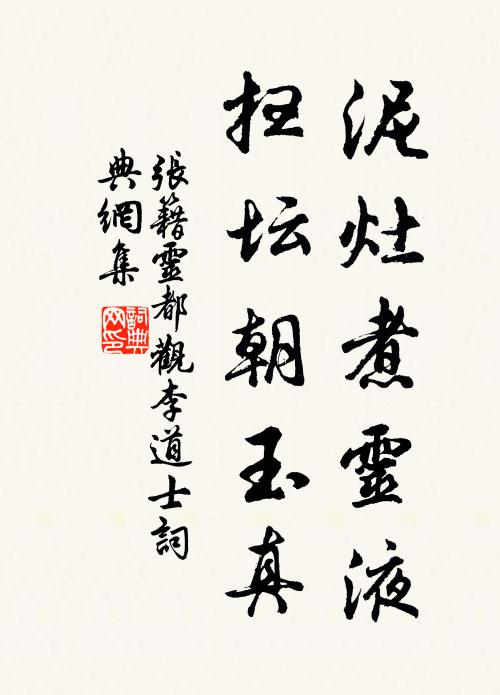 泥灶煮靈液
扫坛朝玉真
張籍靈都觀李道士詞
典網集
詞典
网印